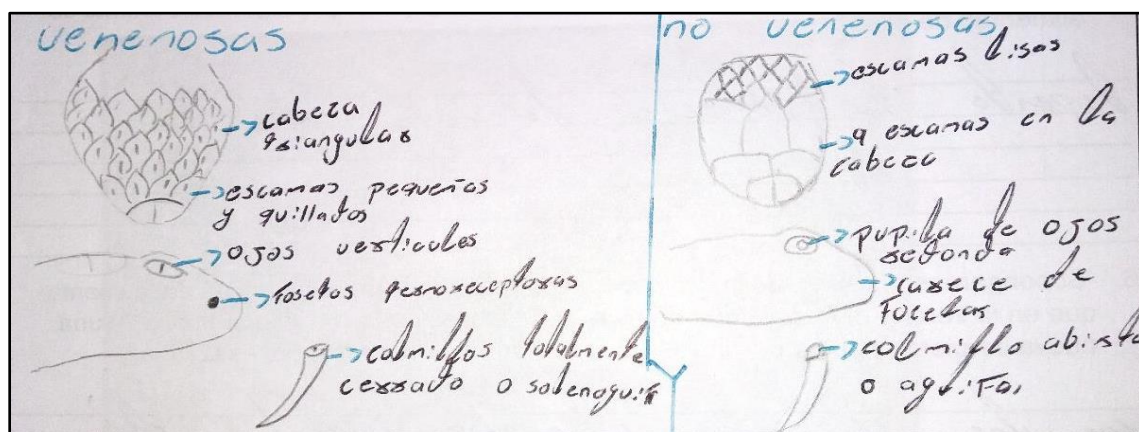 venenosas
cabeza
triangular
escamas pequeñas
y quillados
ojos verticules
fosetas termoreceptoras
colmillos totalmente
cerrado o solenoguif
no venenosas
escamas lisas
9 escamas en la
cabeza
pupila de ojos
redonda
carece de
Focetas
colmillo abierto
o aguifai